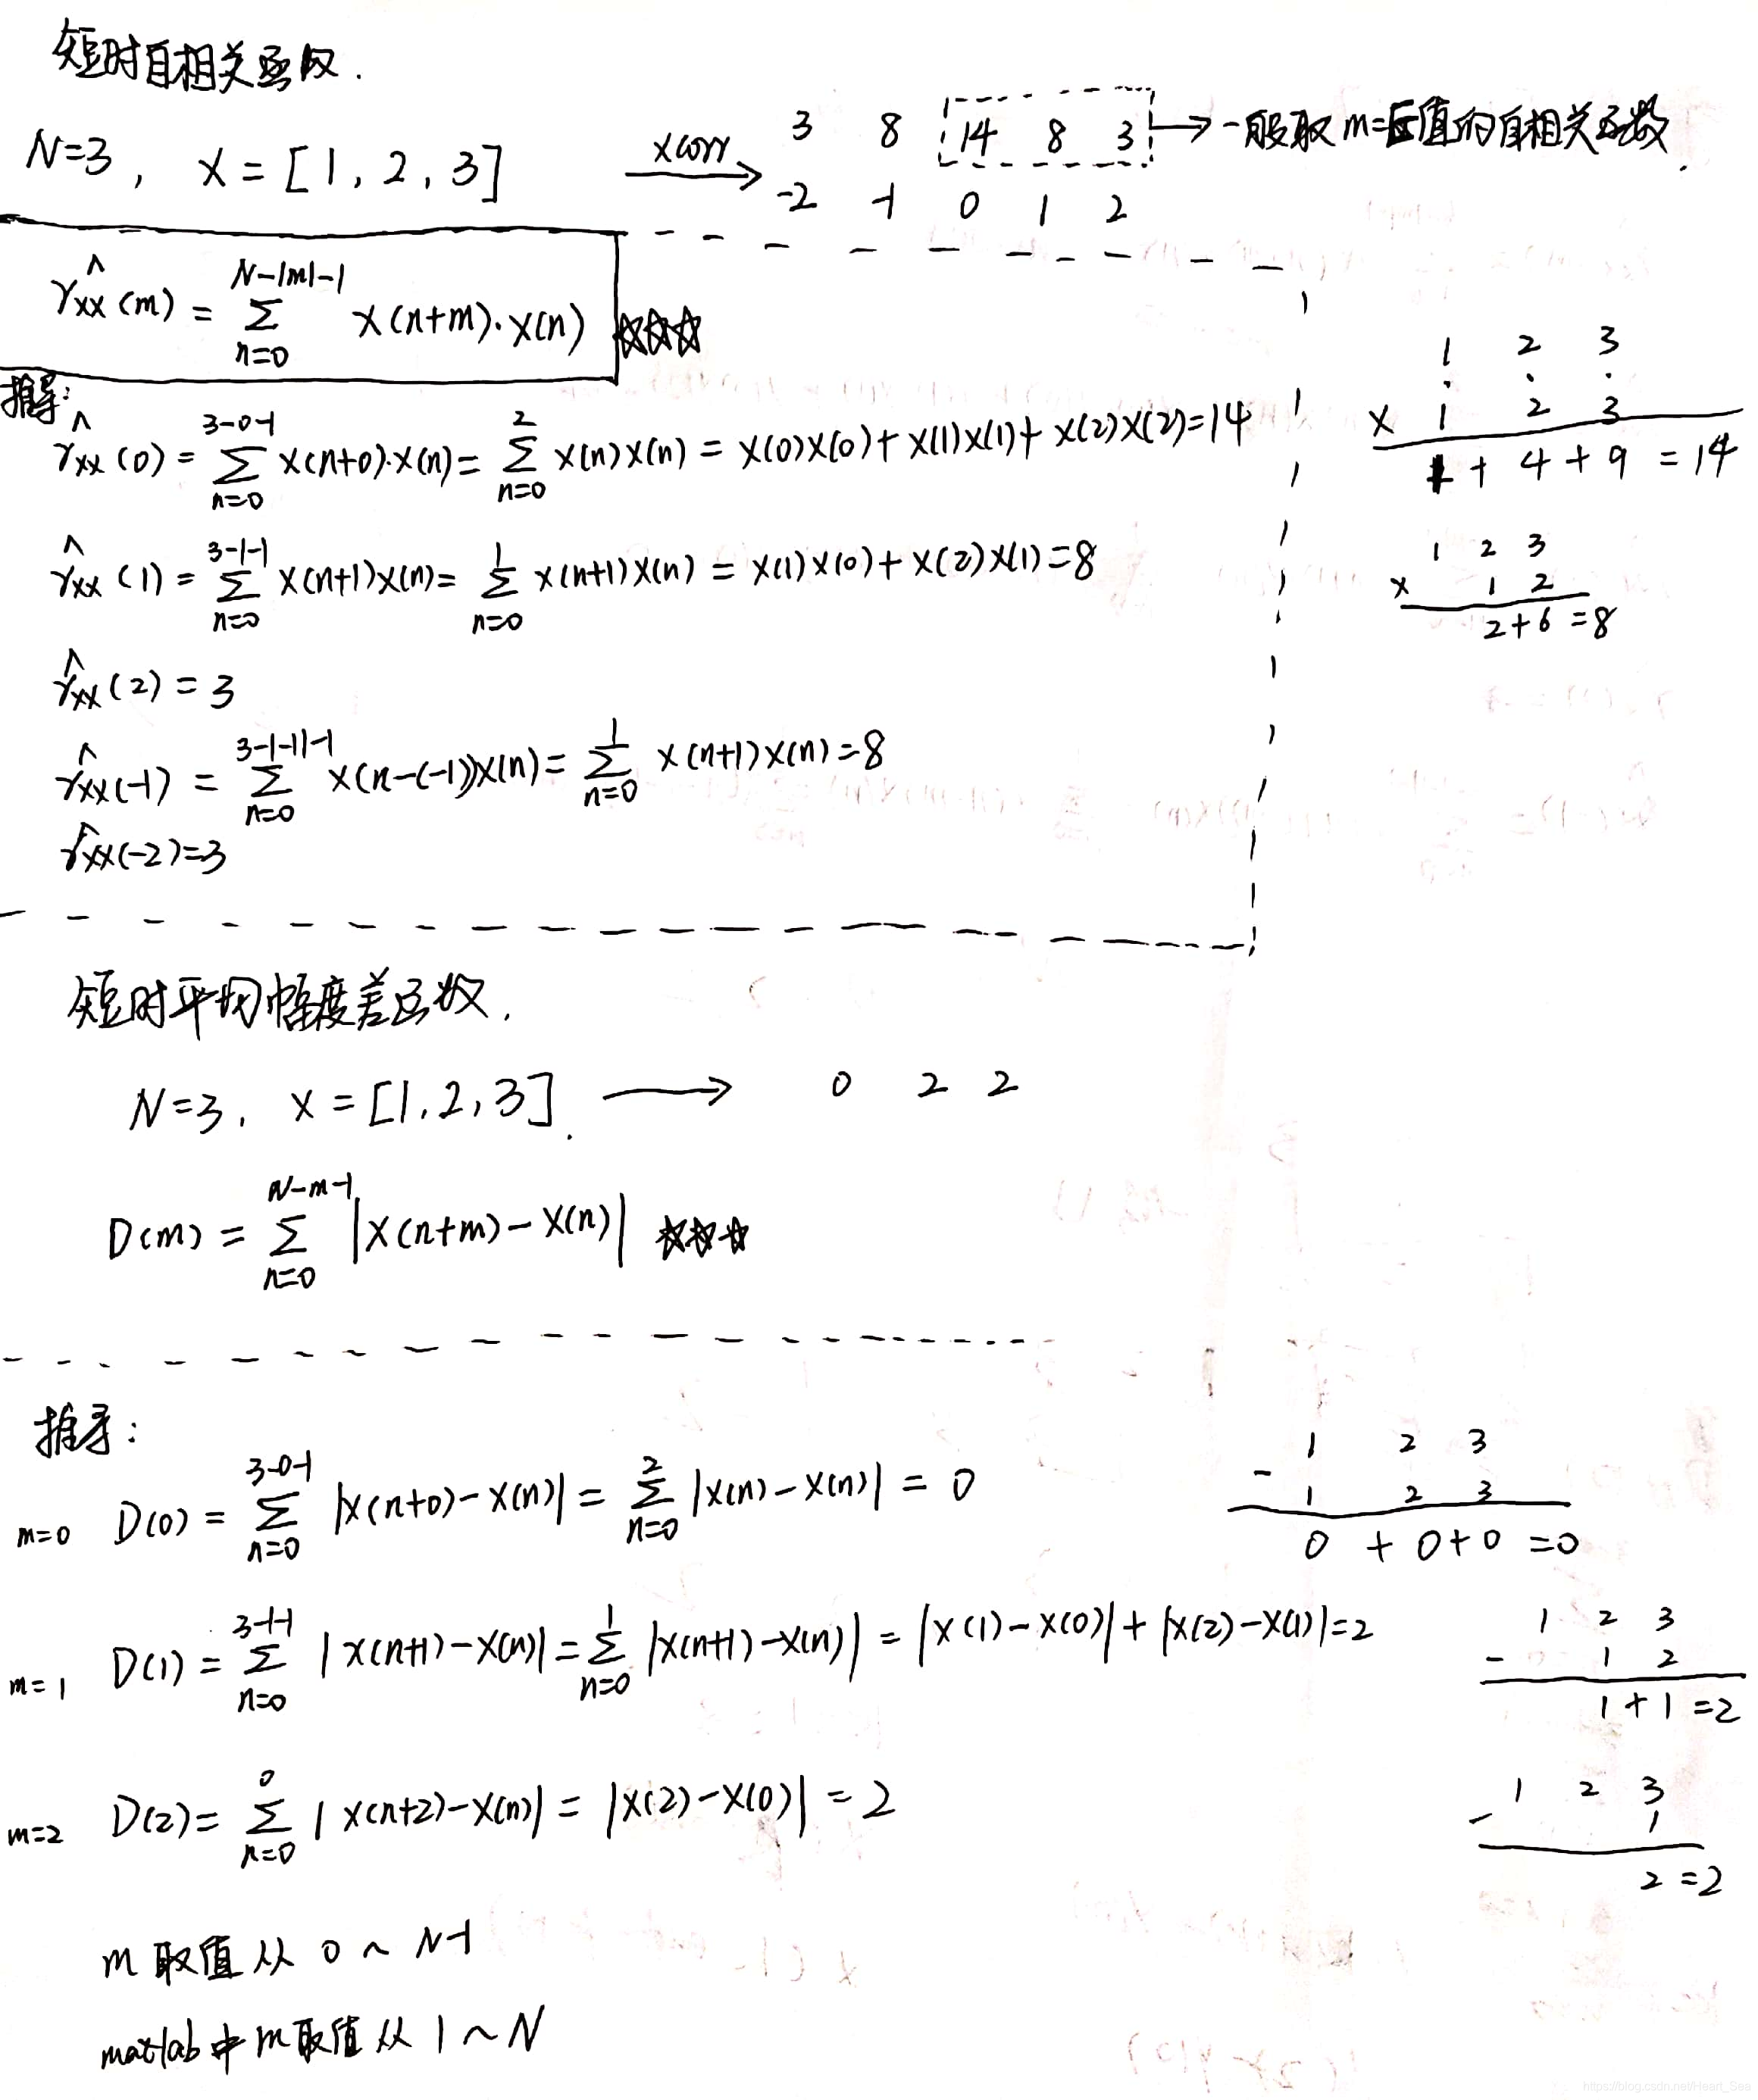 短时自相关函数.
N=3, x=[1,2,3] xcorr 3 8 14 8 3 → 一般取m=正值的自相关函数.
-2 -1 0 1 2
r̂xx(m) = Σ_{n=0}^{N-|m|-1} x(n+m)·x(n) ☆☆☆
推导:
r̂xx(0) = Σ_{n=0}^{3-0-1} x(n+0)·x(n) = Σ_{n=0}^{2} x(n)x(n) = x(0)x(0)+x(1)x(1)+x(2)x(2)=14
1 2 3
× 1 2 3
1+4+9=14
r̂xx(1) = Σ_{n=0}^{3-1-1} x(n+1)x(n) = Σ_{n=0}^{1} x(n+1)x(n) = x(1)x(0)+x(2)x(1)=8
1 2 3
× 1 2
2+6=8
r̂xx(2)=3
r̂xx(-1) = Σ_{n=0}^{3-|-1|-1} x(n-(-1))x(n) = Σ_{n=0}^{1} x(n+1)x(n)=8
r̂xx(-2)=3
短时平均幅度差函数.
N=3, x=[1,2,3]. → 0 2 2
D(m) = Σ_{n=0}^{N-m-1} |x(n+m)-x(n)| ☆☆☆
推导:
m=0 D(0) = Σ_{n=0}^{3-0-1} |x(n+0)-x(n)| = Σ_{n=0}^{2} |x(n)-x(n)| = 0
1 2 3
- 1 2 3
0+0+0=0
m=1 D(1) = Σ_{n=0}^{3-1-1} |x(n+1)-x(n)| = Σ_{n=0}^{1} |x(n+1)-x(n)| = |x(1)-x(0)|+|x(2)-x(1)|=2
1 2 3
- 1 2
1+1=2
m=2 D(2) = Σ_{n=0}^{0} |x(n+2)-x(n)| = |x(2)-x(0)| = 2
1 2 3
- 1
2=2
m取值从 0~N-1
matlab中m取值从 1~N
https://blog.csdn.net/Heart_Sea